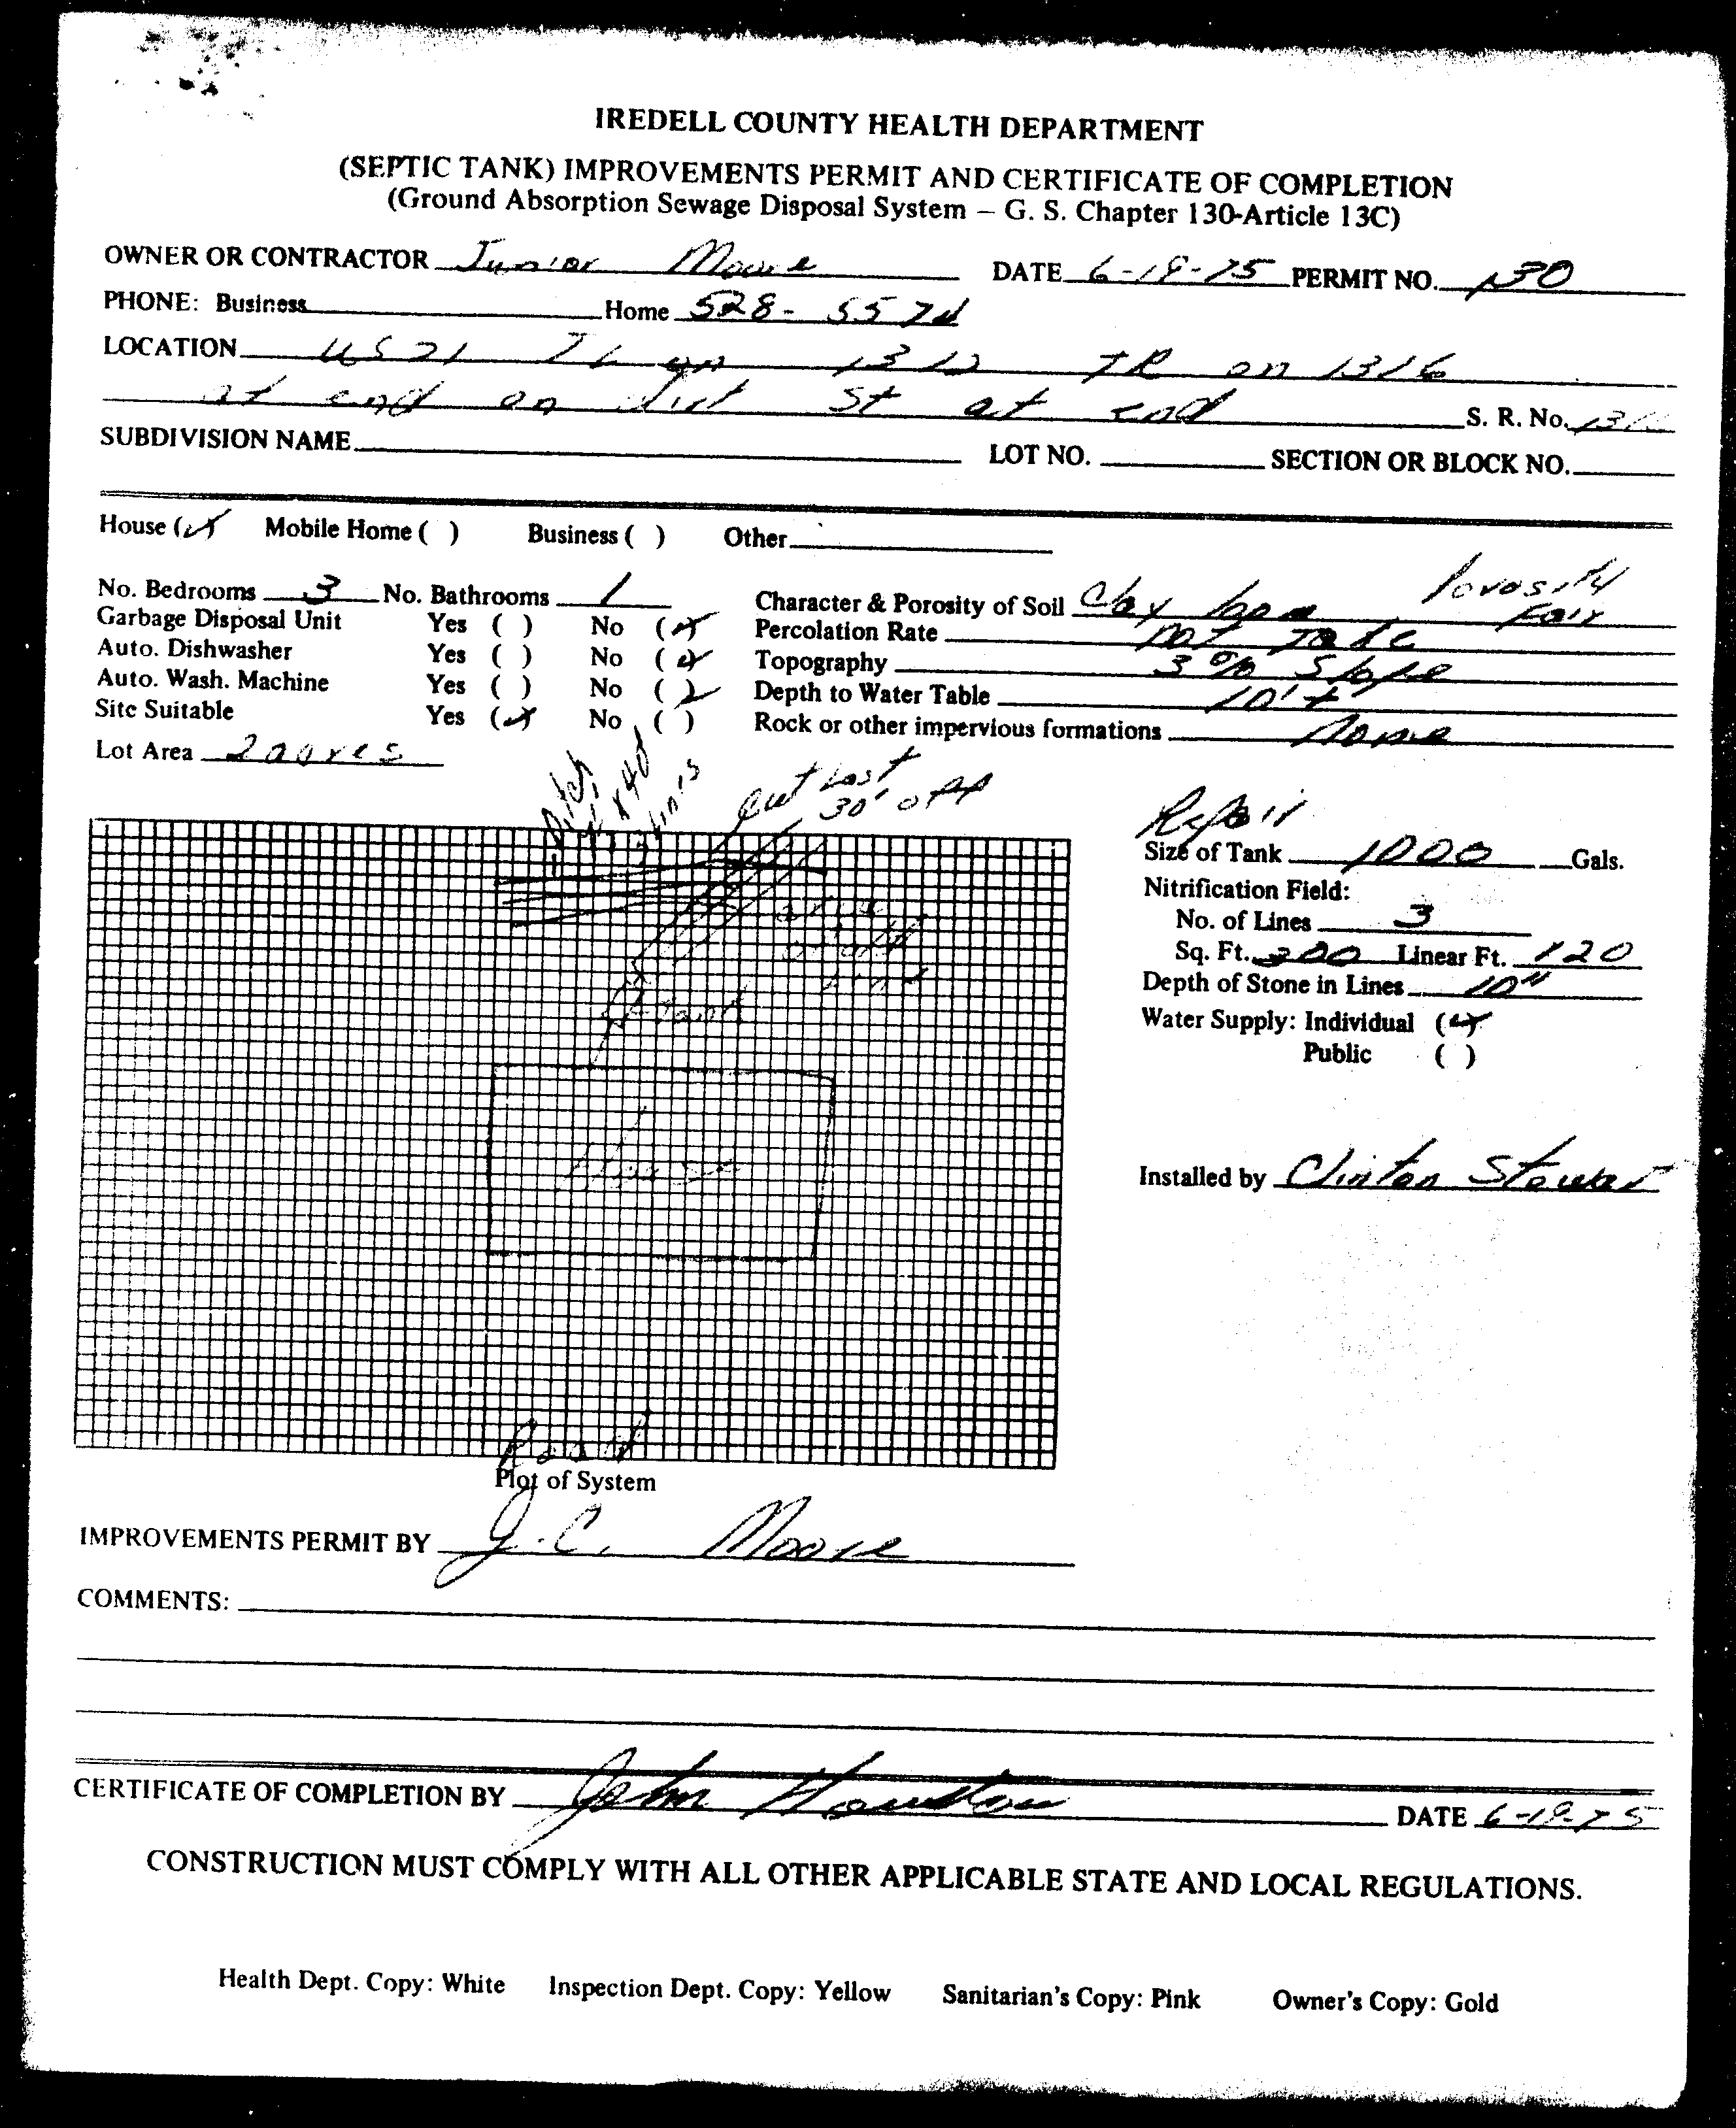 IREDELL COUNTY HEALTH DEPARTMENT
(SEPTIC TANK) IMPROVEMENTS PERMIT AND CERTIFICATE OF COMPLETION
(Ground Absorption Sewage Disposal System – G. S. Chapter 130-Article 13C)
OWNER OR CONTRACTOR Junior Moore DATE 6-18-75 PERMIT NO.
PHONE: Business Home 528-
LOCATION US 21 TL on 1312 TR on 1316
at end on dirt St at end S. R. No.
SUBDIVISION NAME LOT NO. SECTION OR BLOCK NO.
House (✓) Mobile Home ( ) Business ( ) Other
Porosity
No. Bedrooms 3 No. Bathrooms 1 Character & Porosity of Soil Clay loam Fair
Garbage Disposal Unit Yes ( ) No (✓) Percolation Rate not Take
Auto. Dishwasher Yes ( ) No (✓) Topography 3% Slope
Auto. Wash. Machine Yes ( ) No (✓) Depth to Water Table 10'+
Site Suitable Yes (✓) No ( ) Rock or other impervious formations None
Lot Area 2 acres
lines
cut Last
30' off
Repair
Size of Tank 1000 Gals.
Nitrification Field:
No. of Lines 3
Sq. Ft. Linear Ft. 120
Depth of Stone in Lines 10"
Water Supply: Individual (✓)
Public ( )
tank
House
Installed by Clinton
Road
Plot of System
IMPROVEMENTS PERMIT BY J. C. Moore
COMMENTS:
CERTIFICATE OF COMPLETION BY John DATE 6-19-75
CONSTRUCTION MUST COMPLY WITH ALL OTHER APPLICABLE STATE AND LOCAL REGULATIONS.
Health Dept. Copy: White Inspection Dept. Copy: Yellow Sanitarian's Copy: Pink Owner's Copy: Gold